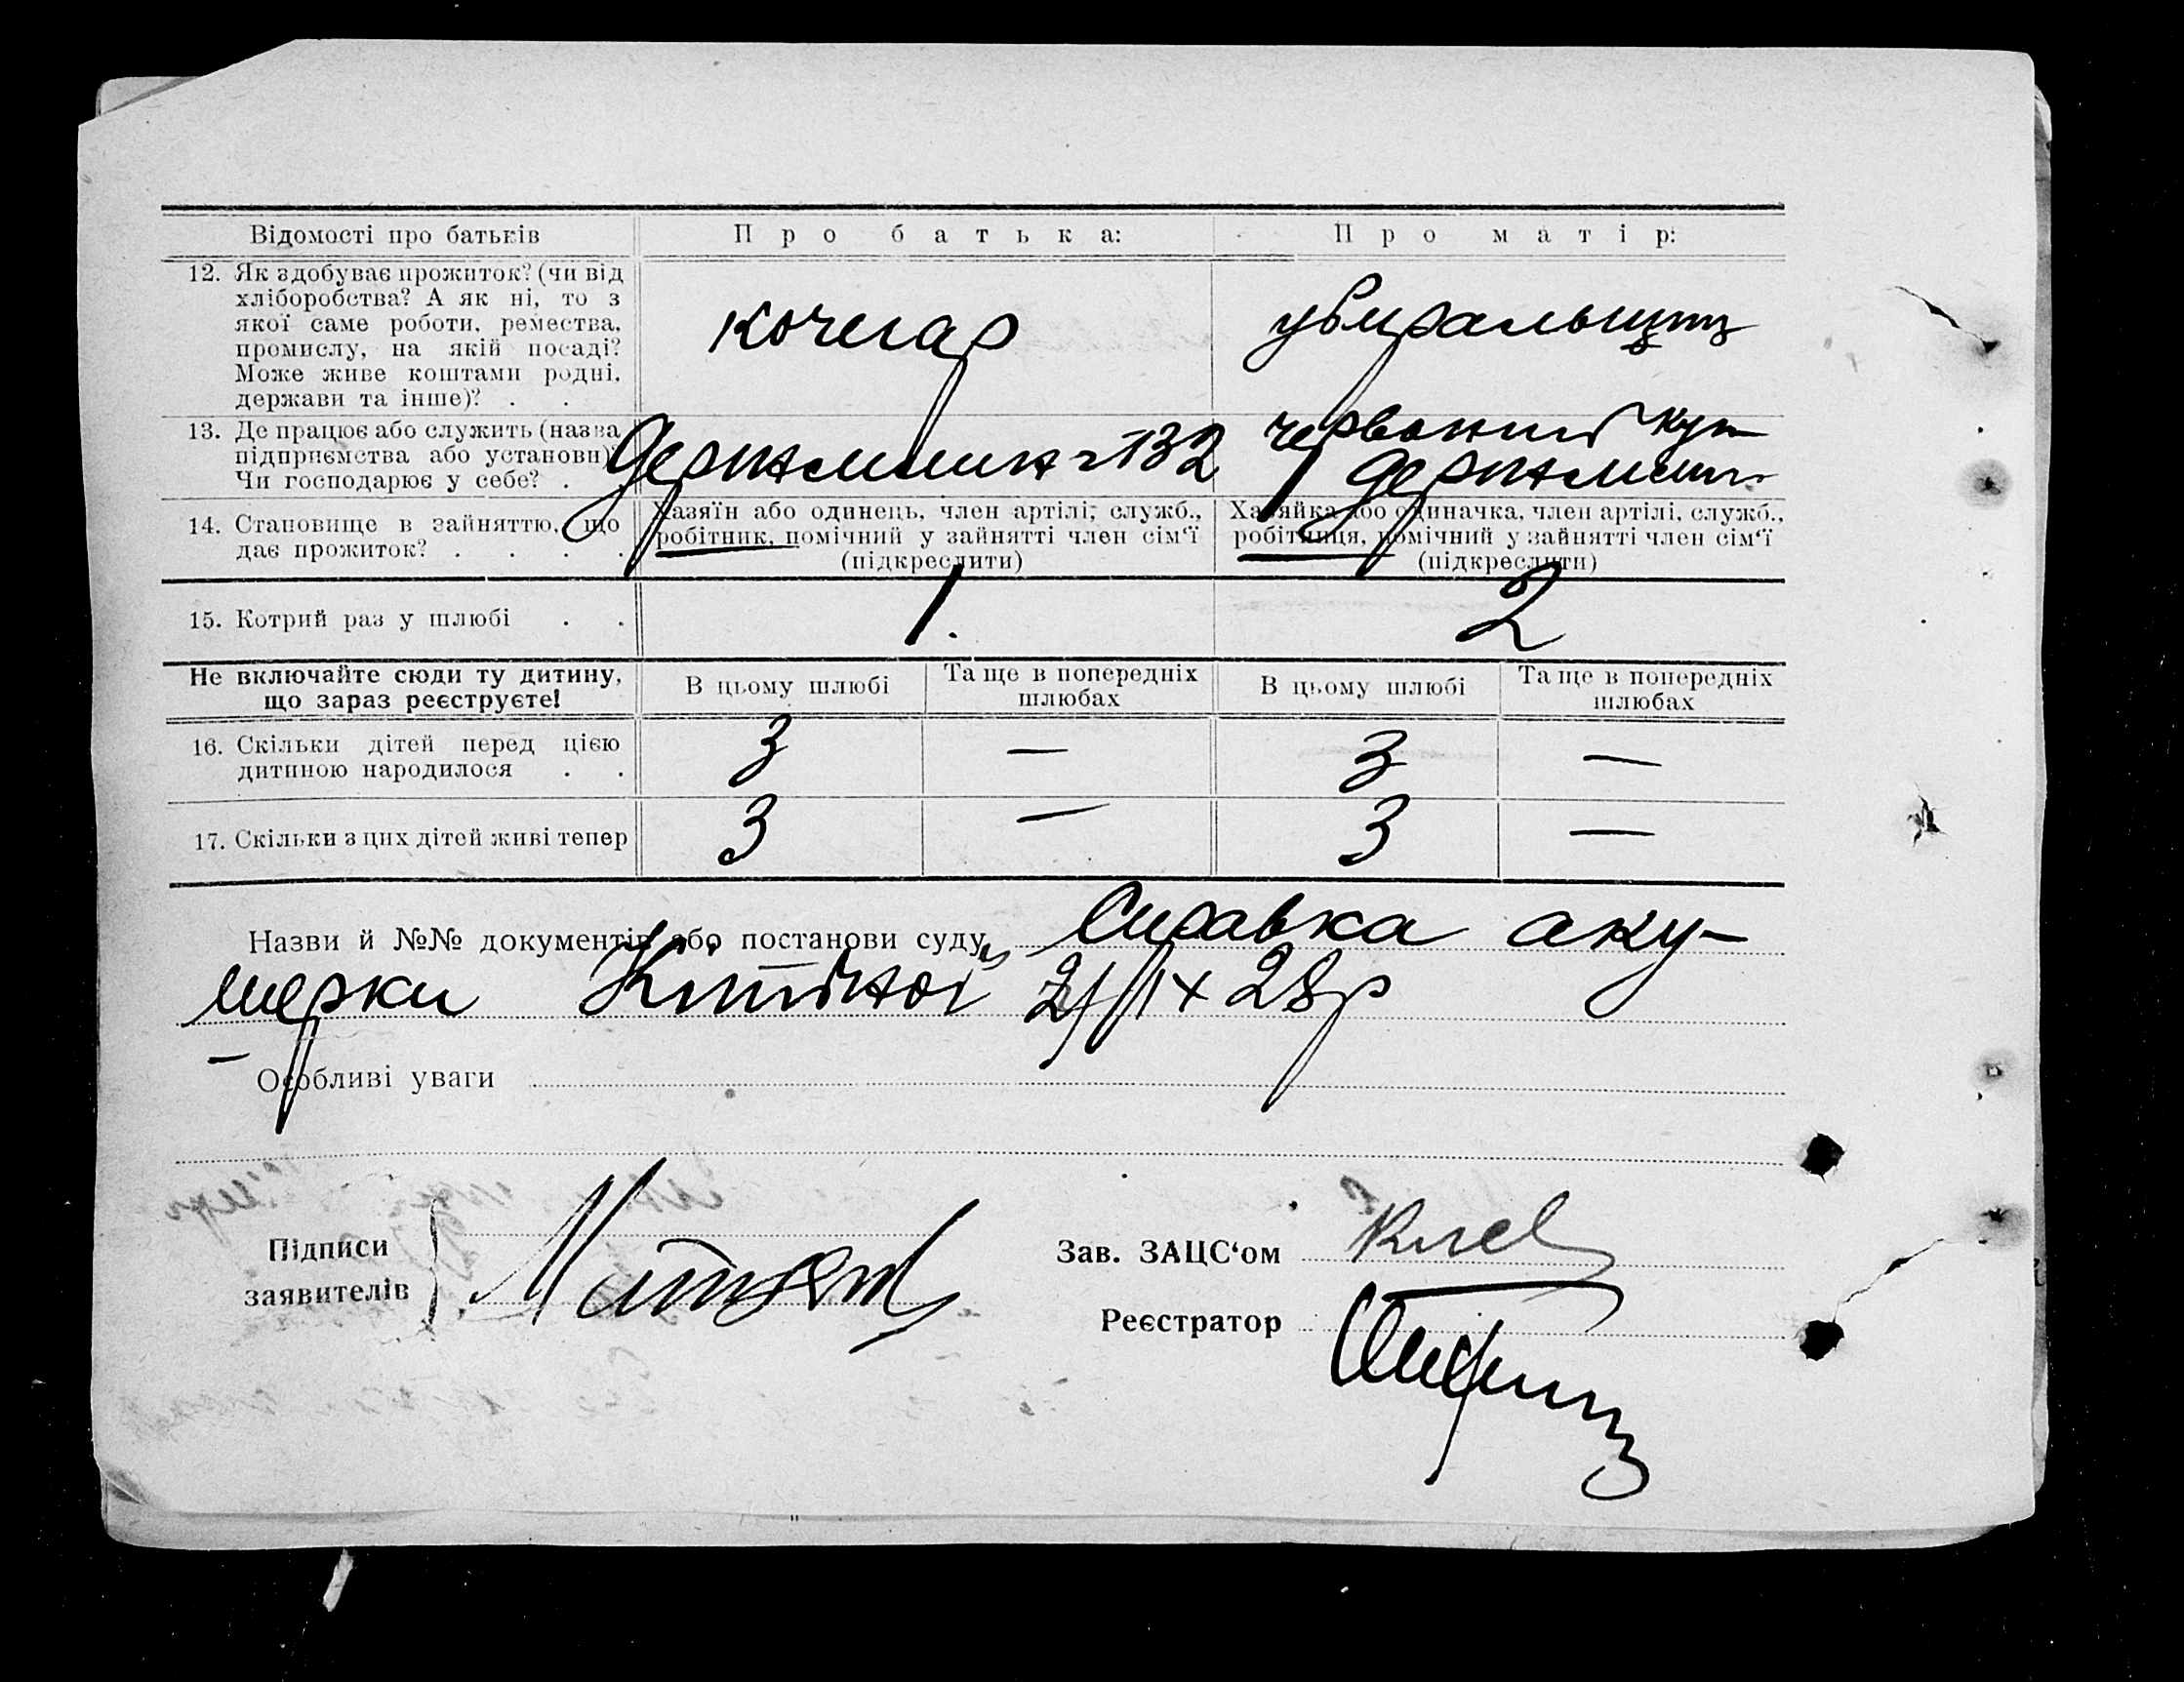 Відомості про батьків
Про батька:
Про матір:
12. Як здобуває прожиток? (чи від
хліборобства? А як ні, то з
якої саме роботи, ремества,
промислу, на якій посаді?
Може живе коштами родні,
держави та інше)? . .
кочегар
убиральщиц
13. Де працює або служить (назва
підприємства або установи)?
Чи господарює у себе? .
Держмлин №132
червоний кут
Держмлин
14. Становище в зайняттю, що
дає прожиток? . . . .
Хазяїн або одинець, член артілі, служб.,
робітник, помічний у зайнятті член сім‘ї
(підкреслити)
Хазяйка або одиначка, член артілі, служб.,
робітниця, помічний у зайнятті член сім‘ї
(підкреслити)
15. Котрий раз у шлюбі . .
1.
2
Не включайте сюди ту дитину,
що зараз реєструєте!
В цьому шлюбі
Та ще в попередніх
шлюбах
В цьому шлюбі
Та ще в попередніх
шлюбах
16. Скільки дітей перед цією
дитиною народилося . .
3
—
3
—
17. Скільки з цих дітей живі тепер
3
—
3
—
Назви й №№ документів або постанови суду Справка аку-
шерки 2/IX 28р
Особливі уваги
Підписи
заявителів
Зав. ЗАЦС‘ом
Реєстратор